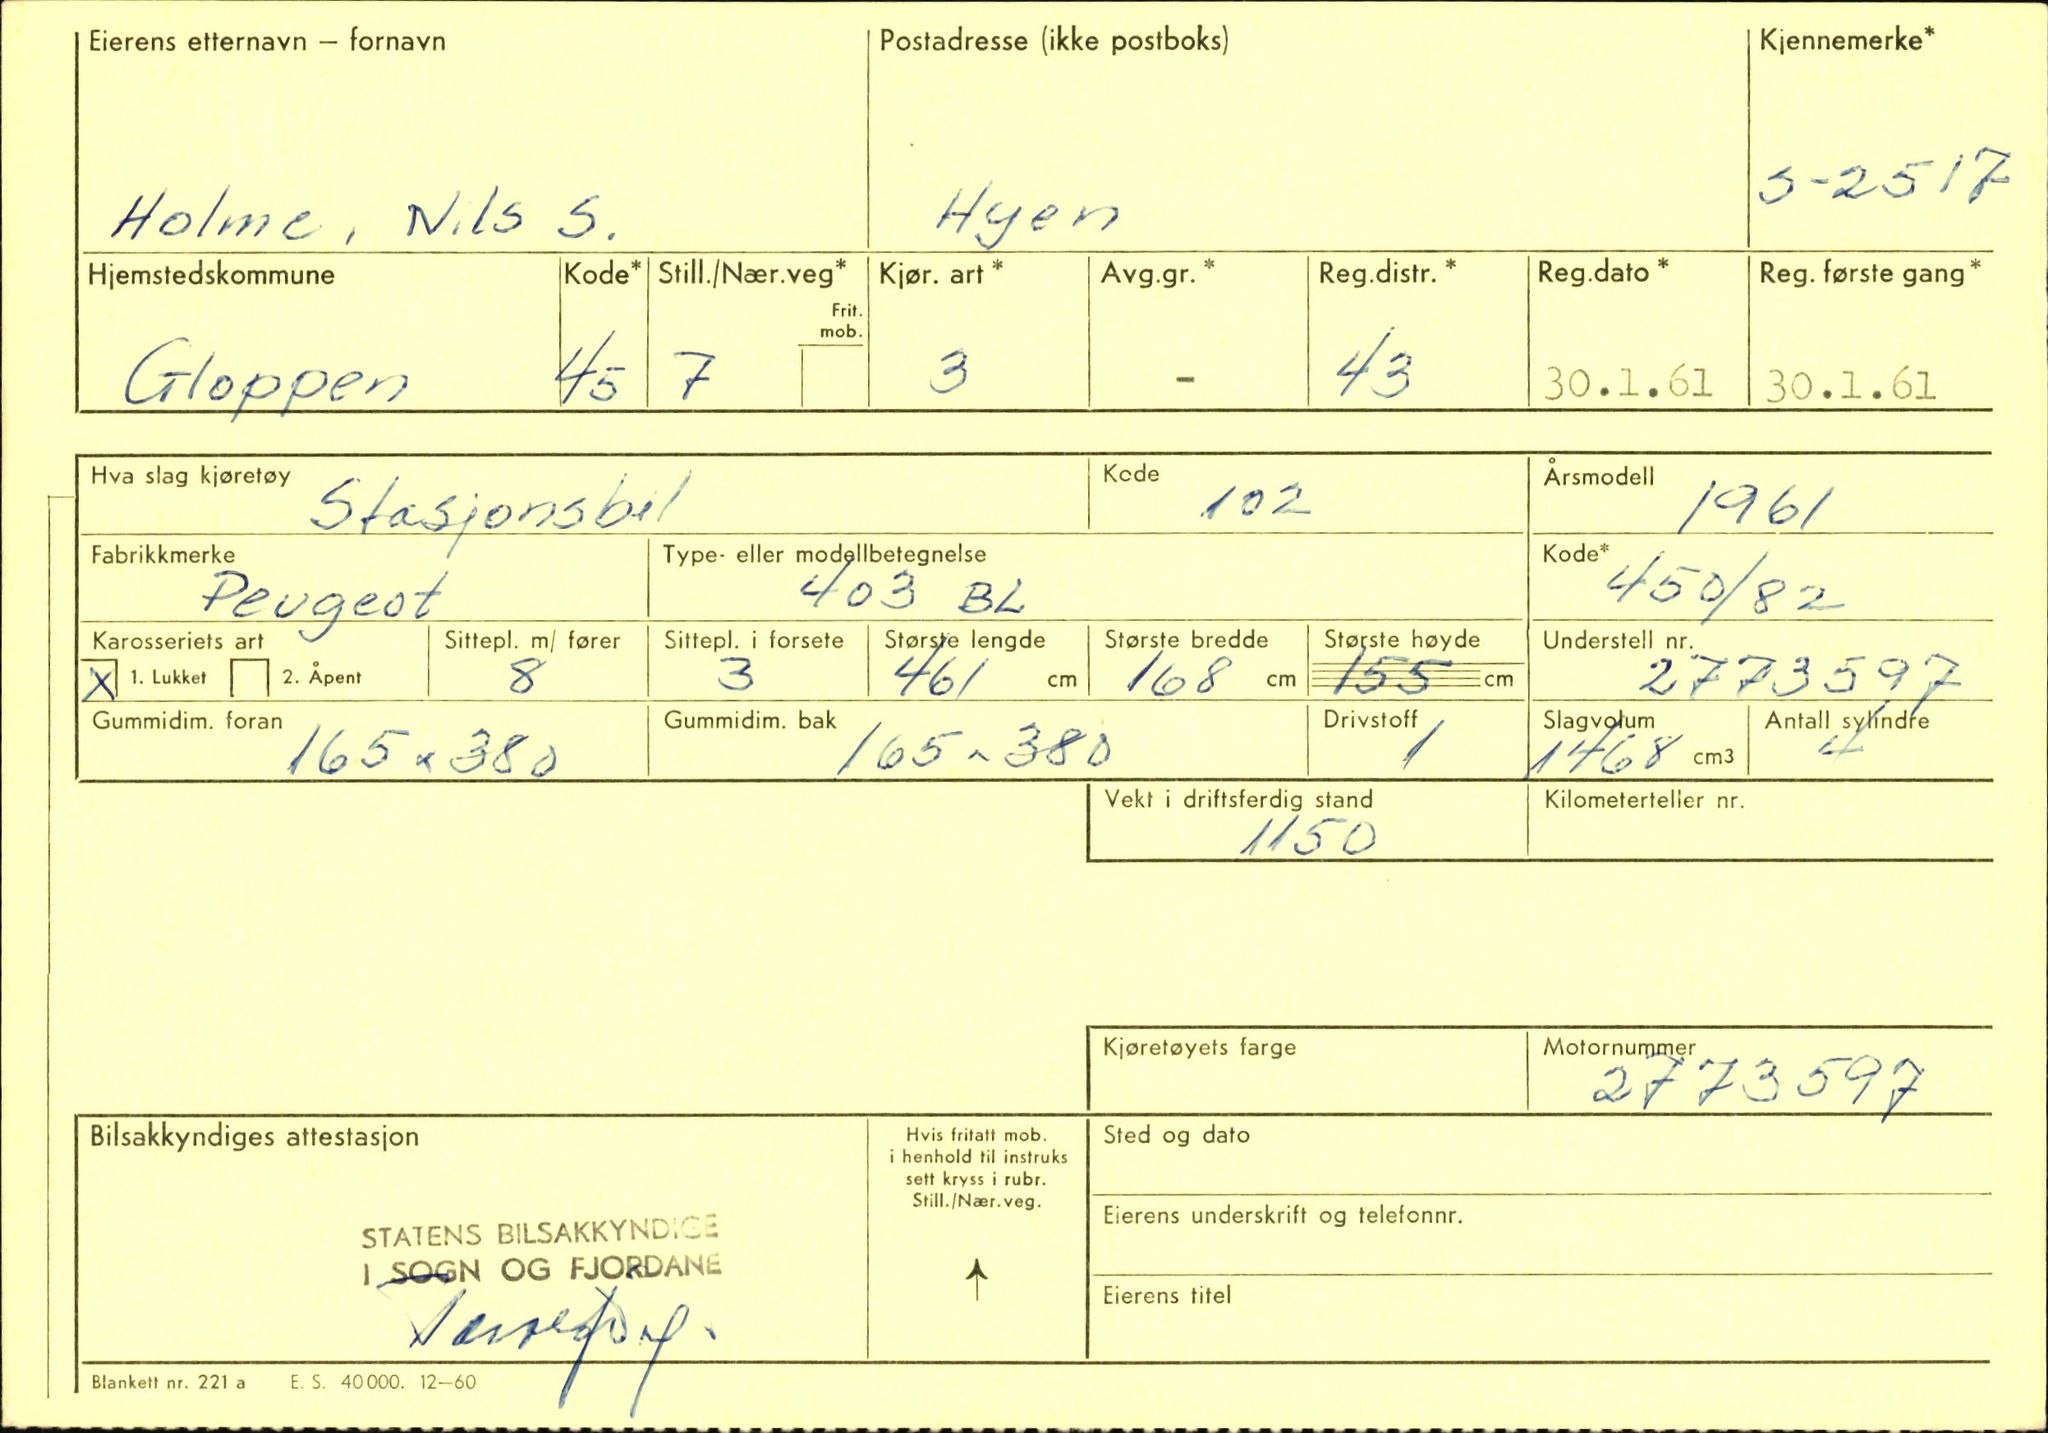 Eierens etternavn – fornavn Postadresse (ikke postboks) Kjennemerke*
Holme, Nils S. Hyen S-2517
Hjemstedskommune Kode* Still./Nær.veg* Kjør. art * Avg.gr. * Reg.distr. * Reg.dato * Reg. første gang *
Frit.
mob.
Gloppen 45 7 3 - 43 30.1.61 30.1.61
Hva slag kjøretøy Stasjonsbil Kode 102 Årsmodell 1961
Fabrikkmerke Type- eller modellbetegnelse Kode*
Peugeot 403 BL 450/82
Karosseriets art Sittepl. m/ fører Sittepl. i forsete Største lengde Største bredde Største høyde Understell nr.
X 1. Lukket 2. Åpent 8 3 461 cm 168 cm 155 cm 2773597
Gummidim. foran Gummidim. bak Drivstoff Slagvolum Antall sylindre
165 x 380 165 x 380 1 1468 cm3 4
Vekt i driftsferdig stand Kilometerteller nr.
1150
Kjøretøyets farge Motornummer
2773597
Bilsakkyndiges attestasjon
Hvis fritatt mob.
i henhold til instruks
sett kryss i rubr.
Still./Nær.veg.
Sted og dato
STATENS BILSAKKYNDIGE
I SOGN OG FJORDANE
Eierens underskrift og telefonnr.
Eierens titel
Blankett nr. 221 a E. S. 40 000. 12–60